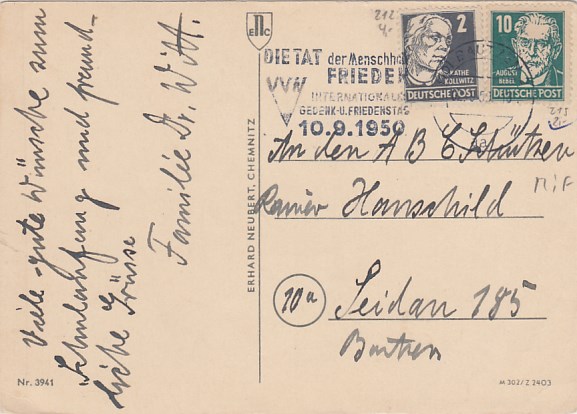 Viele gute Wünsche zum
Schulanfang und freund-
liche Grüsse
Familie Dr. Witt.
ENC
ERHARD NEUBERT, CHEMNITZ
Nr. 3941
212
DIE TAT der Menschh
FRIEDEN
VVN
INTERNATIONALE
GEDENK-U. FRIEDENSTAG
10.9.1950
2
KÄTHE
KOLLWITZ
DEUTSCHE POST
10
AUGUST
BEBEL
DEUTSCHE POST
213
An den A B C Schützen
MiF
Rainer Hanschild
10a
Seidau 185
Bautzen
M 302/Z 2403